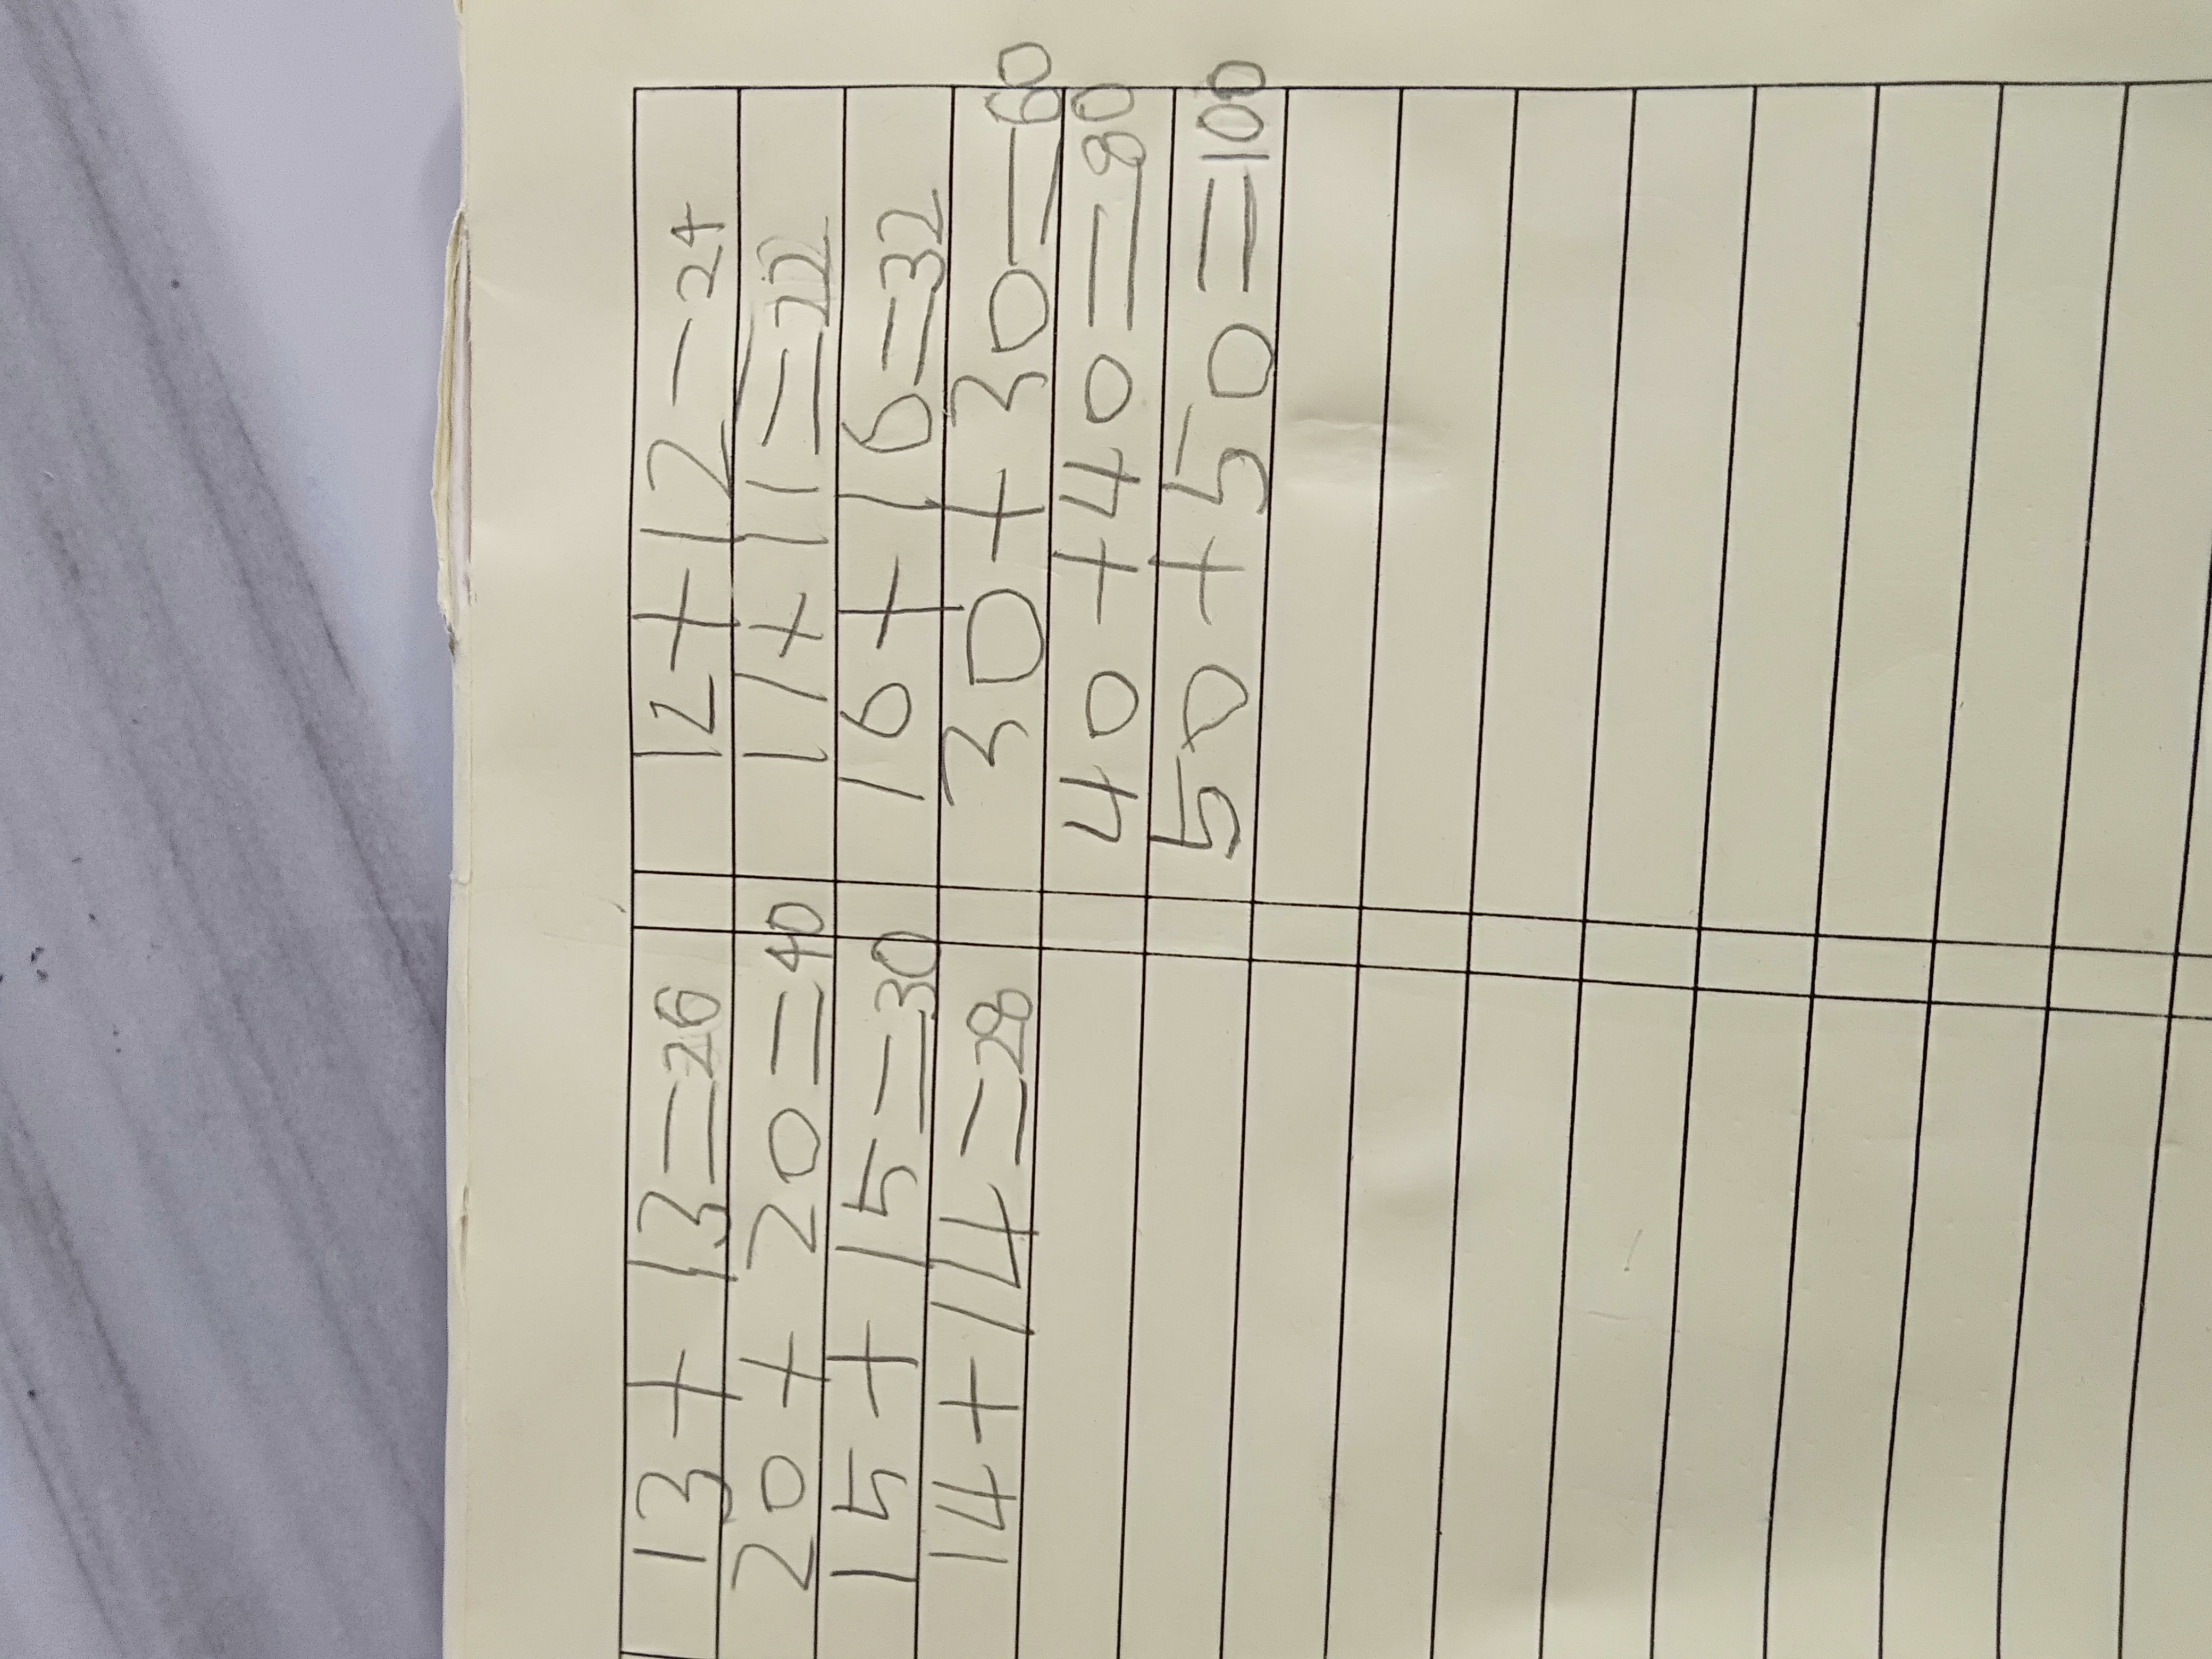 13+13=26
20+20=40
15+15=30
14+14=28
12+12-24
11+11=22
16+16=32
30+30=60
40+40=80
50+50=100